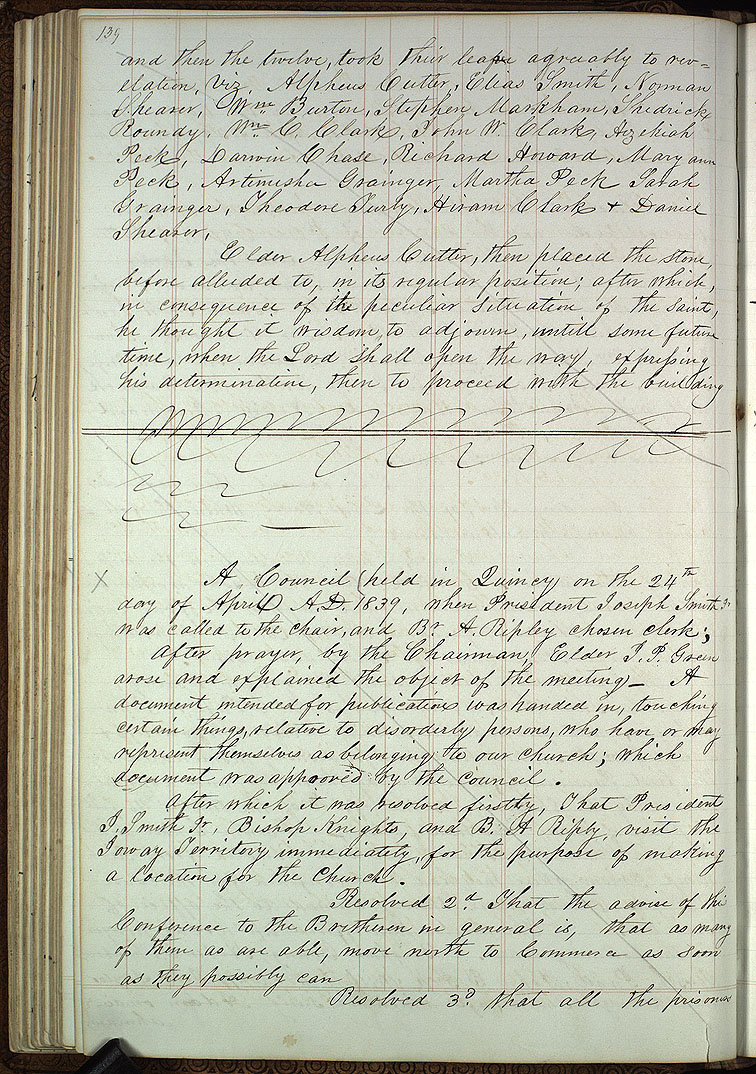 139
and then the twelve, took their leave agreiably to rev=
elation, Viz, Alpheus Cutler, Elias Smith, Norman
Shearer, Wm Burton, Stephen Markham, Shedrick
Roundy, Wm C. Clark, John W. Clark, Hezekiah
Peck, Darwin Chase, Richard Howard, Mary ann
Peck, Artimisha Grainger, Martha Peck Sarah
Grainger, Theodore Turly, Hiram Clark + Daniel
Shearer,
Elder Alpheus Cutler, then placed the stone
before alluded to, in its regular position; after which,
in consequence of the peculiar situation of the saint,
he thought it wisdom, to adjourn, untill some future
time, when the Lord shall open the way, expressing
his determination, then to proceed with the building
X A Council held in Quincy on the 24th
day of April A.D. 1839, when President Joseph Smith Jr
was called to the chair, and Br A. Ripley chosen clerk;
After prayer, by the Chairman, Elder J. P. Green
arose and explained the object of the meeting— A
document intended for publication was handed in, touching
certain things, relative to disorderly persons, who have or may
represent themselves as belonging to our church; which
document was approved by the council.
After which it was resolved firstly, That President
J. Smith Jr., Bishop Knights, and B. A Riply, visit the
Ioway Territory immediately, for the purpose of making
a location for the Church.
Resolved 2d That the advise of this
Conference to the Bretheren in general is, that as many
of them as are able, move north to Commerce as soon
as they possibly can
Resolved 3d. that all the prisoners